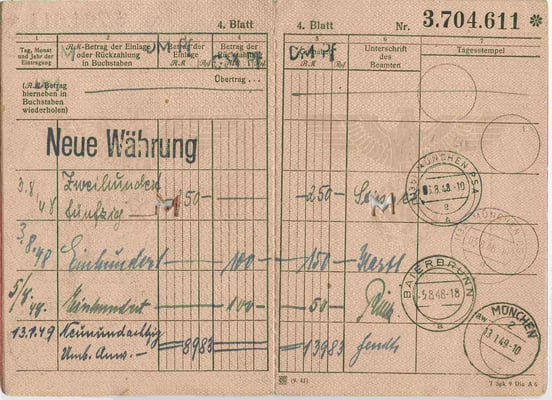 4. Blatt
4. Blatt Nr. 3.704.611 *
1 2 3 4 5 6 7
Tag, Monat und Jahr der Eintragung
RM-Betrag der Einlage oder Rückzahlung in Buchstaben
Betrag der Einlage
RM Rpf
DM Pf
Betrag der
RM Rpf
DM Pf
RM Rpf
Unterschrift des Beamten
Tagesstempel
(RM-Betrag hierneben in Buchstaben wiederholen)
Übertrag . . .
Neue Währung
3.8.48 Zweihundert
fünfzig — 250 —
MÜNCHEN PSA
3.8.48-10
a
3.8.48 Einhundert — 100 — 150 —
BAIERBRUNN
-5.8.48-18
a
Einhundert 100 — 50 —
13.1.49 Neunundachtzig
Umb. Anw. — 8983 13983
MÜNCHEN 2
aw
13.1.49-10
(9. 41)